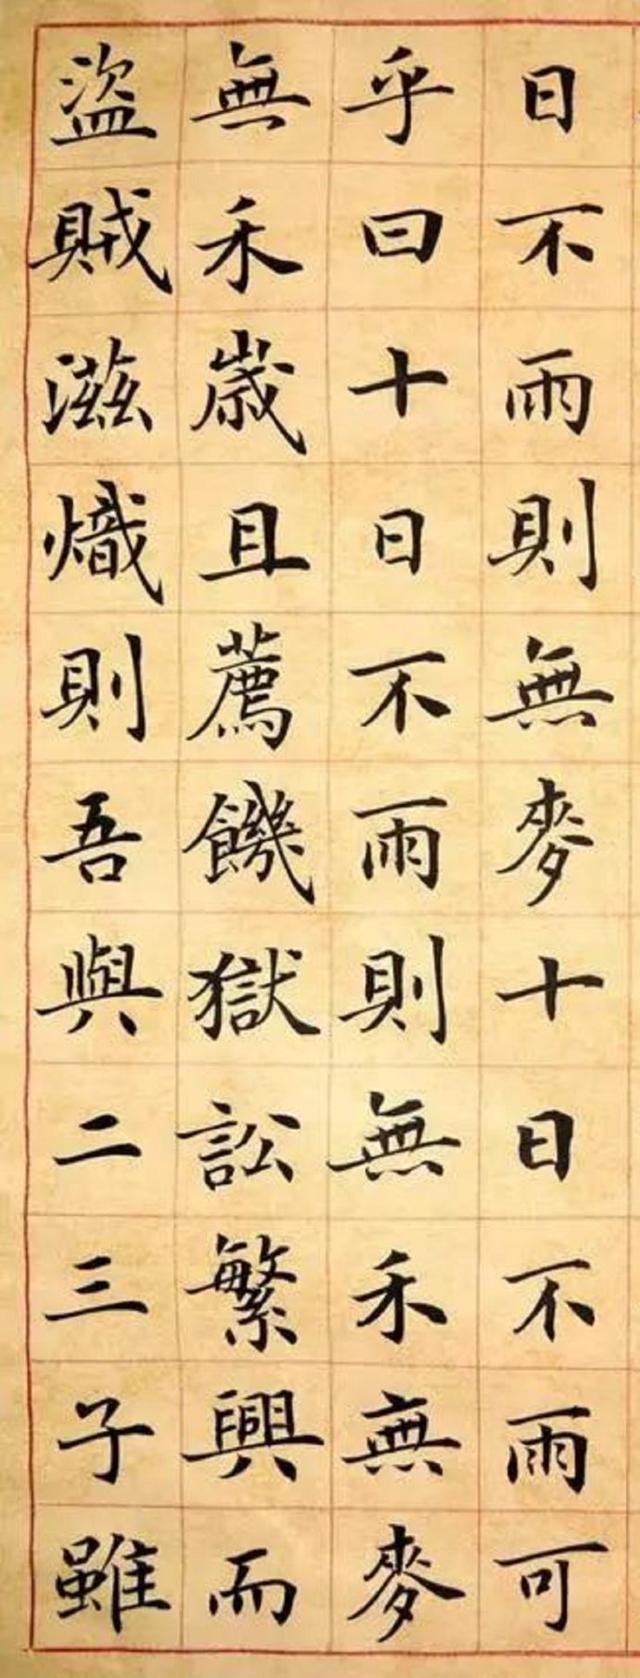 日不雨則無麥十日不雨可
乎曰十日不雨則無禾無麥
無禾歲且薦饑獄訟繁興而
盜賊滋熾則吾與二三子雖